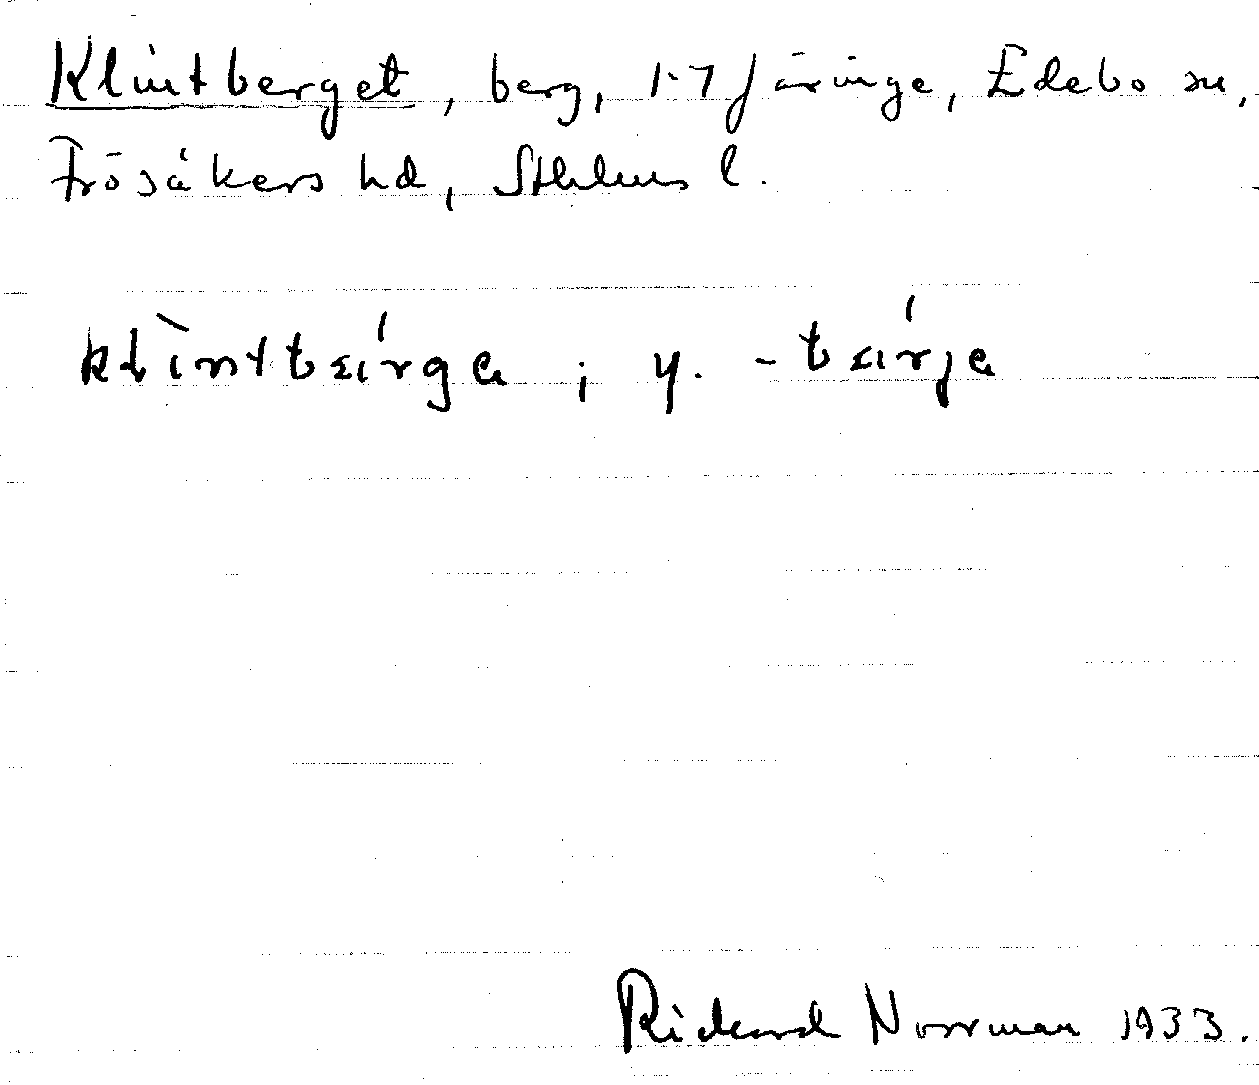 Klintberget, berg, 1-7 Järinge, Edebo sn,
Frösåkers hd, Sthlms l.
; y. -
Rickard Norrman 1933.